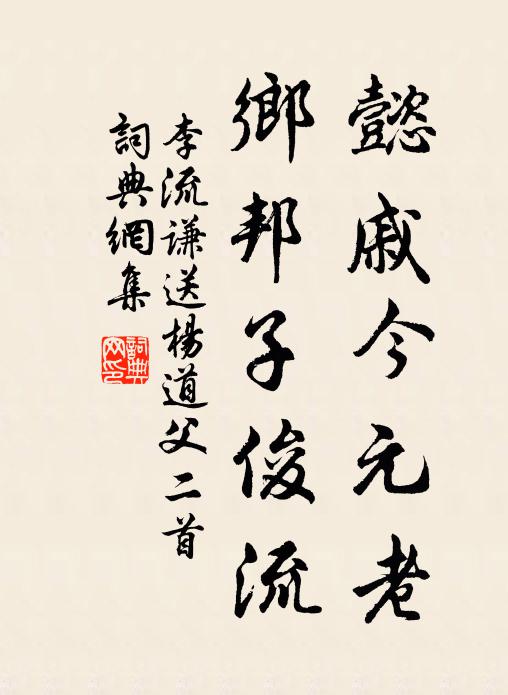 懿戚今元老
鄉邦子俊流
李流謙送楊道父二首
詞典網集
詞典网印